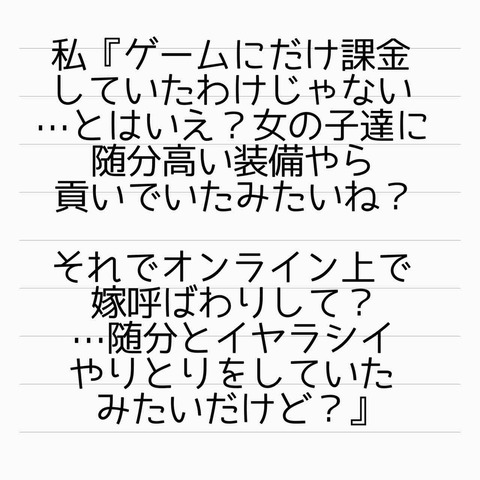 私『ゲームにだけ課金
していたわけじゃない
…とはいえ？女の子達に
随分高い装備やら
貢いでいたみたいね？
それでオンライン上で
嫁呼ばわりして？
…随分とイヤラシイ
やりとりをしていた
みたいだけど？』